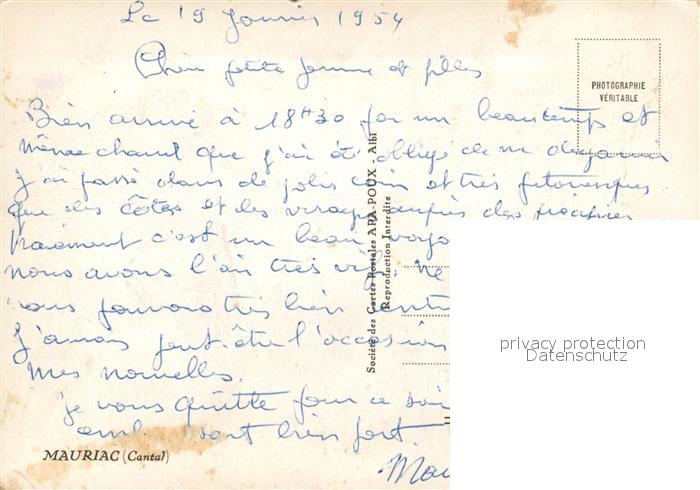 Le 19 Janvier 1954
Chère petite femme et filles
PHOTOGRAPHIE
VÉRITABLE
Bien arrivé à 18H30 par un beau temps et
même chaud que j'ai été obligé de me
j'ai passé dans de jolis coin et très pitoresques
que des côtes et des virages auprès des
Vraiment c'est un beau
nous avons l'air très Ne
vous très bien
j'aurais peut-être l'occasion
Mes nouvelles.
je vous quitte pour ce soir
en vous bien fort.
MAURIAC (Cantal)
Société des Cartes Postales APA-POUX - Albi
Reproduction Interdite
privacy protection
Datenschutz